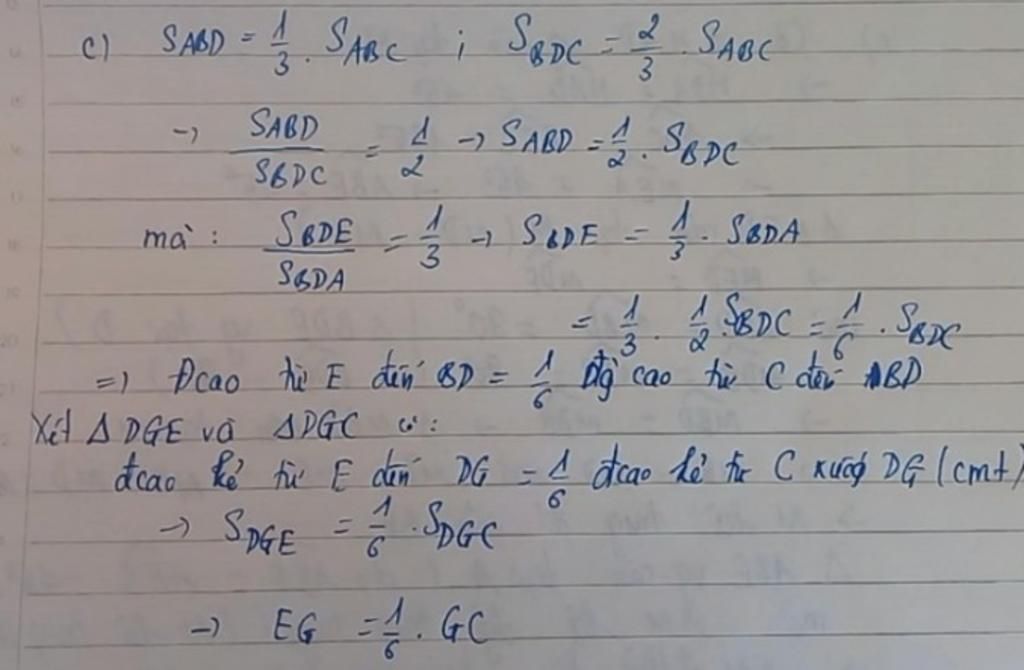 c) SABD = 1/3 . SABC ; SBDC = 2/3 . SABC
→ SABD/SBDC = 1/2 → SABD = 1/2 . SBDC
mà : SBDE/SBDA = 1/3 → SBDE = 1/3 . SBDA
= 1/3 . 1/2 SBDC = 1/6 . SBDC
=) Đcao từ E đến BD = 1/6 cao từ C đến BD
Xét Δ DGE và ΔDGC có:
đcao kẻ từ E đến DG = 1/6 đcao kẻ từ C xuống DG (cmt)
→ SDGE = 1/6 . SDGC
→ EG = 1/6 . GC